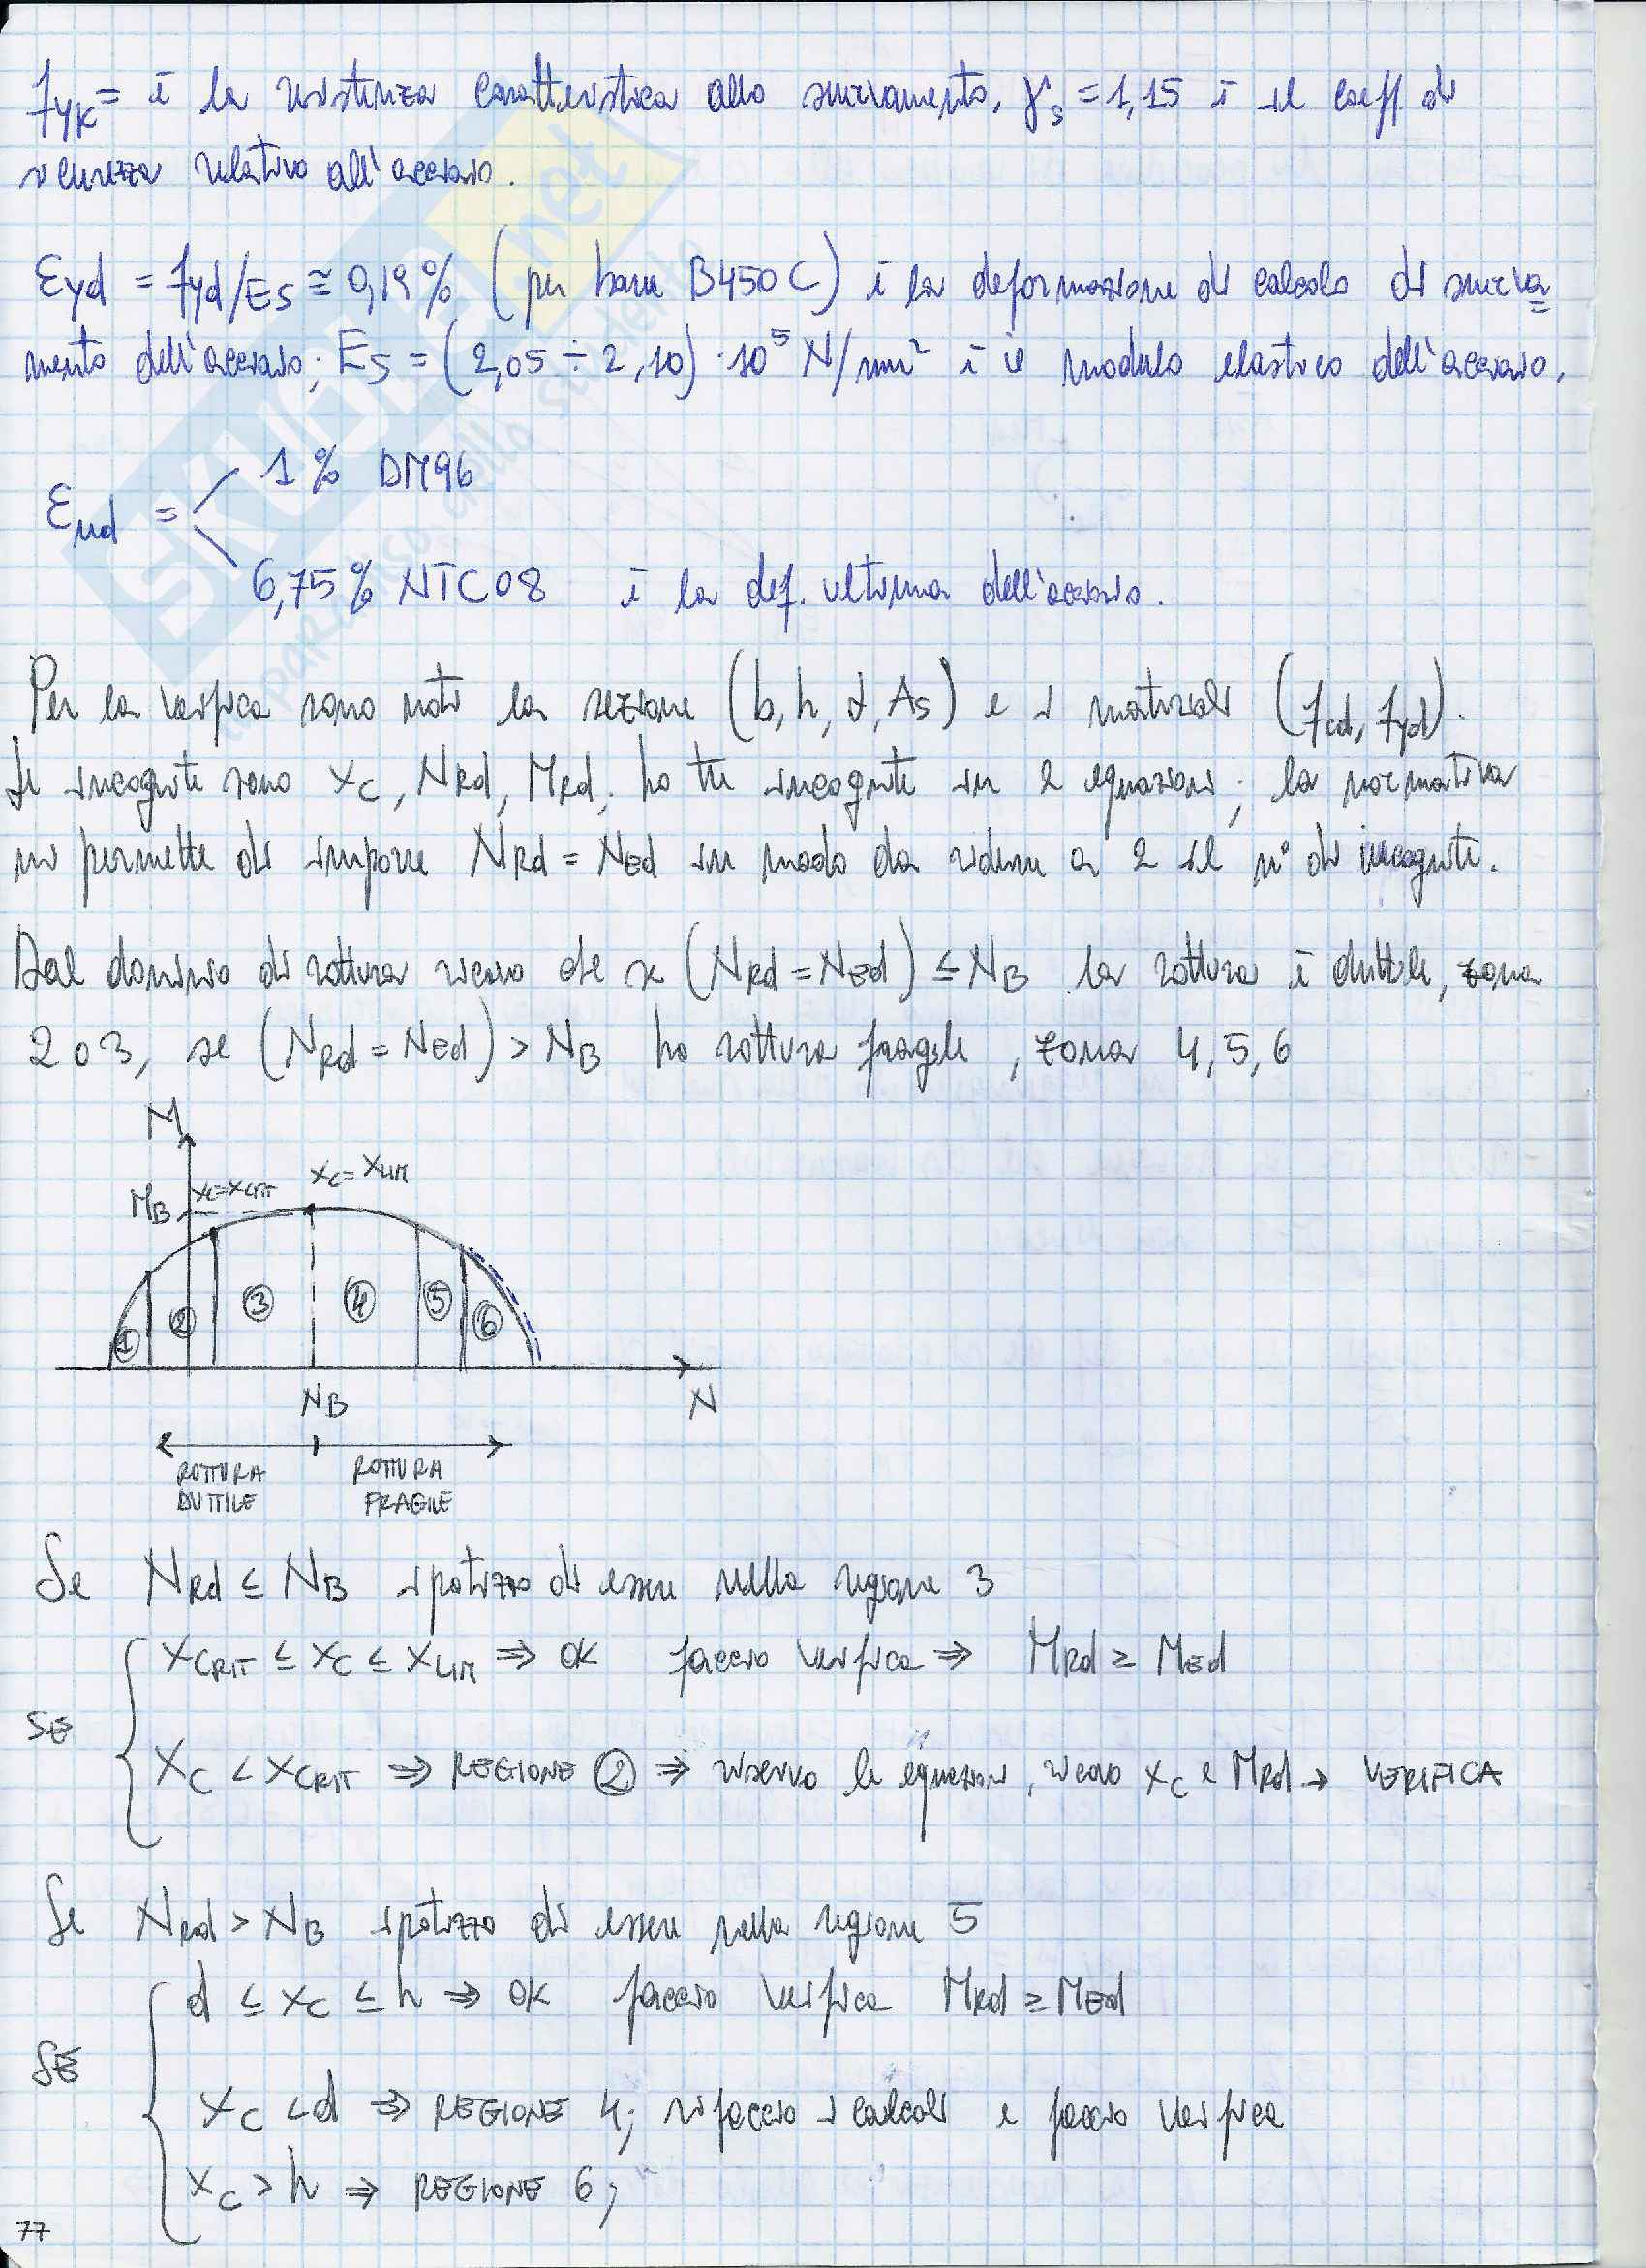 fyk = è la resistenza caratteristica allo snervamento, γs = 1,15 è il coeff. di
sicurezza relativo all'acciaio.
εyd = fyd/Es ≅ 0,19% (per barre B450C) è la deformazione di calcolo di snerva
mento dell'acciaio; Es = (2,05 ÷ 2,10)·10⁵ N/mm² è il modulo elastico dell'acciaio.
1% DM96
εud =
6,75% NTC08 è la def. ultima dell'acciaio.
Per la verifica sono noti la sezione (b, h, d, As) e i materiali (fcd, fyd).
Le incognite sono xc, NRd, MRd; ho tre incognite in 2 equazioni; la normativa
mi permette di imporre NRd = NEd in modo da ridurre a 2 il n° di incognite.
Dal dominio di rottura ricavo che se (NRd = NEd) ≤ NB la rottura è duttile, zona
2 o 3, se (NRd = NEd) > NB ho rottura fragile, zona 4, 5, 6
M
xc = xLIM
MB xc=xCRIT
1 2 3 4 5 6
NB N
ROTTURA DUTTILE ROTTURA FRAGILE
Se NRd ≤ NB ipotizzo di essere nella regione 3
xCRIT ≤ xc ≤ xLIM ⇒ OK faccio verifica ⇒ MRd ≥ MEd
SE
xc < xCRIT ⇒ REGIONE ② ⇒ riscrivo le equazioni, ricavo xc e MRd → VERIFICA
Se NRd > NB ipotizzo di essere nella regione 5
d ≤ xc ≤ h ⇒ OK faccio verifica MRd ≥ MEd
SE
xc < d ⇒ REGIONE 4; rifaccio i calcoli e faccio verifica
xc > h ⇒ REGIONE 6;
77
SKUOLA.net